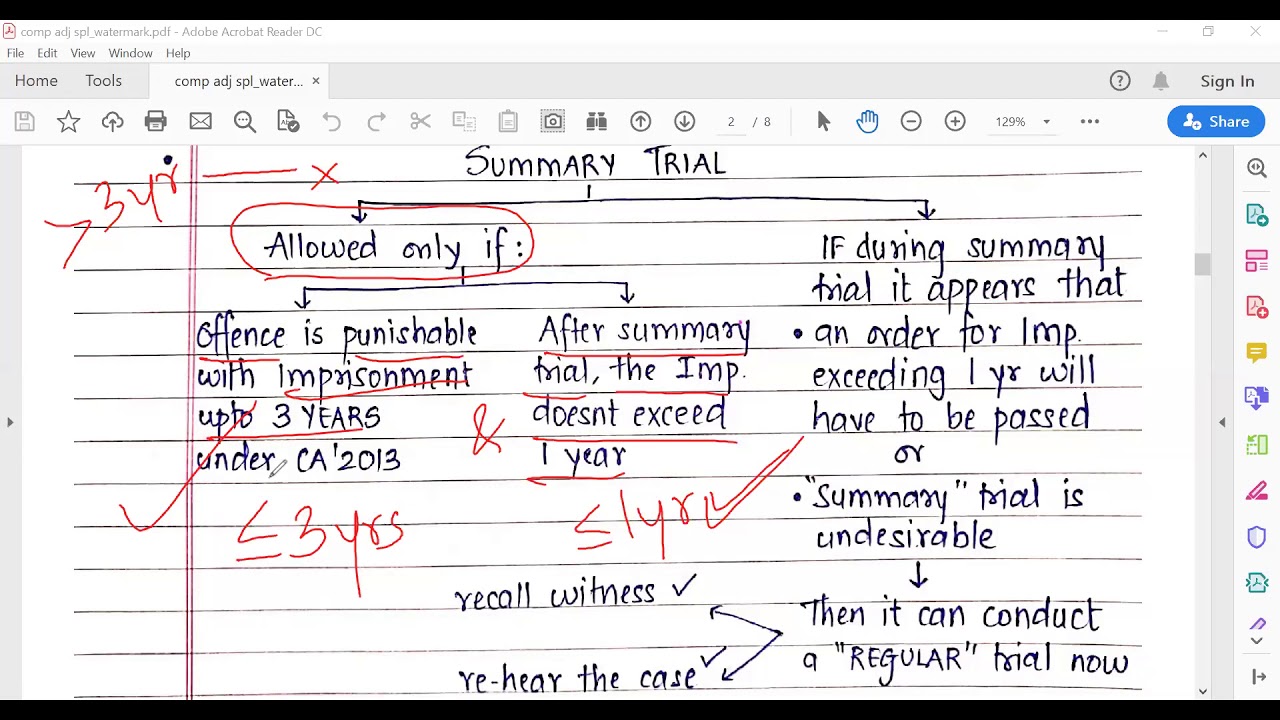 comp adj spl_watermark.pdf - Adobe Acrobat Reader DC
File Edit View Window Help
Home Tools comp adj spl_water... ×
Sign In
2 / 8
129%
Share
SUMMARY TRIAL
> 3 yr — ×
Allowed only if:
offence is punishable
with Imprisonment
upto 3 YEARS
under CA'2013
≤ 3 yrs
&
After summary
trial, the Imp.
doesnt exceed
1 year
≤ 1 yr
IF during summary
trial it appears that
• an order for Imp.
exceeding 1 yr will
have to be passed
or
• "Summary" trial is
undesirable
Then it can conduct
a "REGULAR" trial now
recall witness ✓
re-hear the case ✓